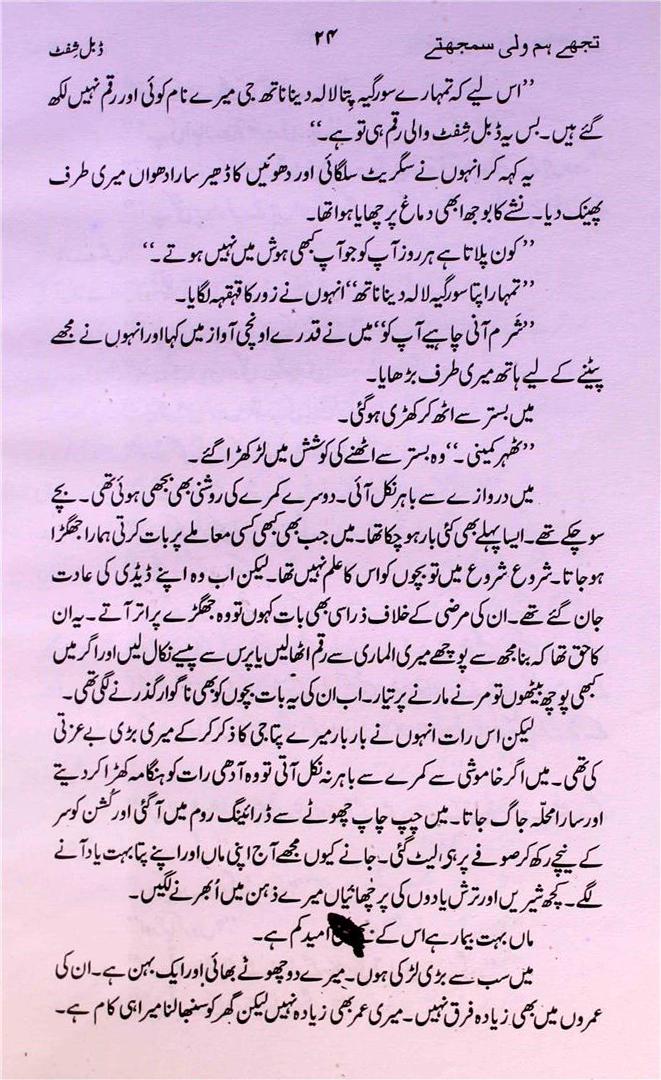 تجھے ہم ولی سمجھتے ۲۴ ڈبل شِفٹ
’’اس لیے کہ تمہارے سورگیہ پتا لالہ دینا ناتھ جی میرے نام کوئی اور رقم نہیں لکھ
گئے ہیں۔ بس یہ ڈبل شِفٹ والی رقم ہی تو ہے۔‘‘
یہ کہہ کر انہوں نے سگریٹ سلگائی اور دھوئیں کا ڈھیر سارا دھواں میری طرف
پھینک دیا۔ نشے کا بوجھ ابھی دماغ پر چھایا ہوا تھا۔
’’کون پلاتا ہے ہر روز آپ کو جو آپ کبھی ہوش میں نہیں ہوتے۔‘‘
’’تمہارا پتا سورگیہ لالہ دینا ناتھ‘‘ انہوں نے زور کا قہقہہ لگایا۔
’’شَرم آنی چاہیے آپ کو‘‘ میں نے قدرے اونچی آواز میں کہا اور انہوں نے مجھے
پیٹنے کے لیے ہاتھ میری طرف بڑھایا۔
میں بستر سے اٹھ کر کھڑی ہوگئی۔
’’ٹھہر کمینی۔‘‘ وہ بستر سے اٹھنے کی کوشش میں لڑکھڑا گئے۔
میں دروازے سے باہر نکل آئی۔ دوسرے کمرے کی روشنی بھی بجھی ہوئی تھی۔ بچے
سو چکے تھے۔ ایسا پہلے بھی کئی بار ہو چکا تھا۔ میں جب بھی کبھی کسی معاملے پر بات کرتی ہمارا جھگڑا
ہو جاتا۔ شروع شروع میں تو بچوں کو اس کا علم نہیں تھا۔ لیکن اب وہ اپنے ڈیڈی کی عادت
جان گئے تھے۔ ان کی مرضی کے خلاف ذرا سی بھی بات کہوں تو وہ جھگڑے پر اتر آتے۔ یہ ان
کا حق تھا کہ بنا مجھ سے پوچھے میری الماری سے رقم اٹھا لیں یا پرس سے پیسے نکال لیں اور اگر میں
کبھی پوچھ بیٹھوں تو مرنے مارنے پر تیار۔ اب ان کی یہ بات بچوں کو بھی ناگوار گذرنے لگی تھی۔
لیکن اس رات انہوں نے بار بار میرے پتا جی کا ذکر کر کے میری بڑی بے عزتی
کی تھی۔ میں اگر خاموشی سے کمرے سے باہر نہ نکل آتی تو وہ آدھی رات کو ہنگامہ کھڑا کر دیتے
اور سارا محلّہ جاگ جاتا۔ میں چپ چاپ چھوٹے سے ڈرائینگ روم میں آ گئی اور کُشن کو سر
کے نیچے رکھ کر صوفے پر ہی لیٹ گئی۔ جانے کیوں مجھے آج اپنی ماں اور اپنے پتا بہت یاد آنے
لگے۔ کچھ شیریں اور ترش یادوں کی پرچھائیاں میرے ذہن میں اُبھرنے لگیں۔
ماں بہت بیمار ہے اس کے امید کم ہے۔
میں سب سے بڑی لڑکی ہوں۔ میرے دو چھوٹے بھائی اور ایک بہن ہے۔ ان کی
عمروں میں بھی زیادہ فرق نہیں۔ میری عمر بھی زیادہ نہیں لیکن گھر کو سنبھالنا میرا ہی کام ہے۔